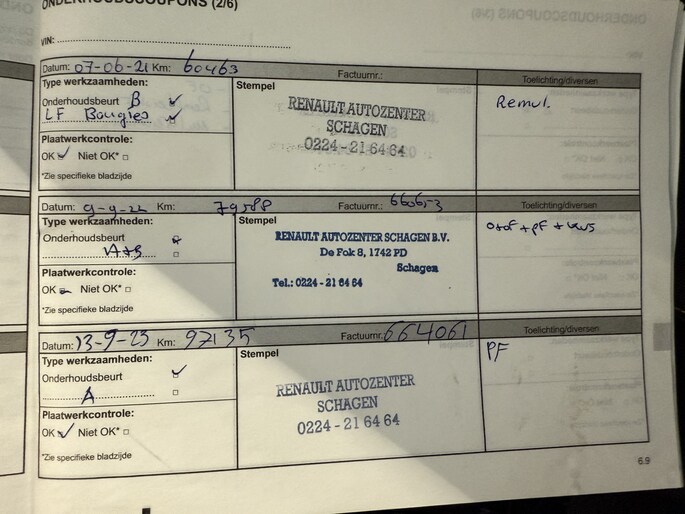 ONDERHOUDSCOUPONS (2/6)
VIN:
Datum: 07-06-21 Km: 60463 Factuurnr.: Toelichting/diversen
Type werkzaamheden: Stempel
Onderhoudsbeurt B
LF Bougies
RENAULT AUTOZENTER
SCHAGEN
0224-216464
Remvl.
Plaatwerkcontrole:
OK Niet OK*
*Zie specifieke bladzijde
Datum: 9-9-22 Km: 79588 Factuurnr.: Toelichting/diversen
Type werkzaamheden: Stempel
Onderhoudsbeurt
A+B
RENAULT AUTOZENTER SCHAGEN B.V.
De Fok 8, 1742 PD
Schagen
Tel.: 0224-216464
Plaatwerkcontrole:
OK Niet OK*
*Zie specifieke bladzijde
Datum: 13-9-23 Km: 97135 Factuurnr.: 664061 Toelichting/diversen
Type werkzaamheden: Stempel
Onderhoudsbeurt
A
RENAULT AUTOZENTER
SCHAGEN
0224-216464
PF
Plaatwerkcontrole:
OK Niet OK*
*Zie specifieke bladzijde
6.9